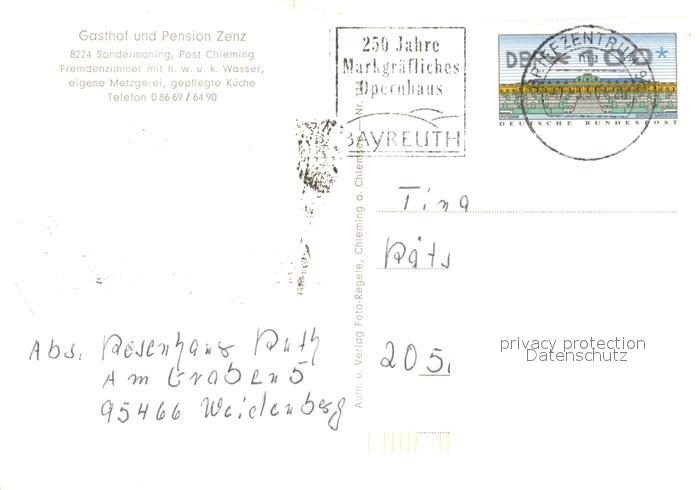 Gasthof und Pension Zenz
8224 Sondermoning, Post Chieming
Fremdenzimmer mit fl. w. u. k. Wasser,
eigene Metzgerei, gepflegte Küche
Telefon 0 86 69 / 64 90
250 Jahre
Markgräfliches
Opernhaus
BAYREUTH
BRIEFZENTRUM
DEUTSCHE BUNDESPOST
Aufn. u. Verlag Foto-Regele, Chieming a. Chiemsee Nr.
Tina
205
privacy protection
Datenschutz
Abs. Rosenhaur Ruth
Am Graben 5
95466 Weidenberg